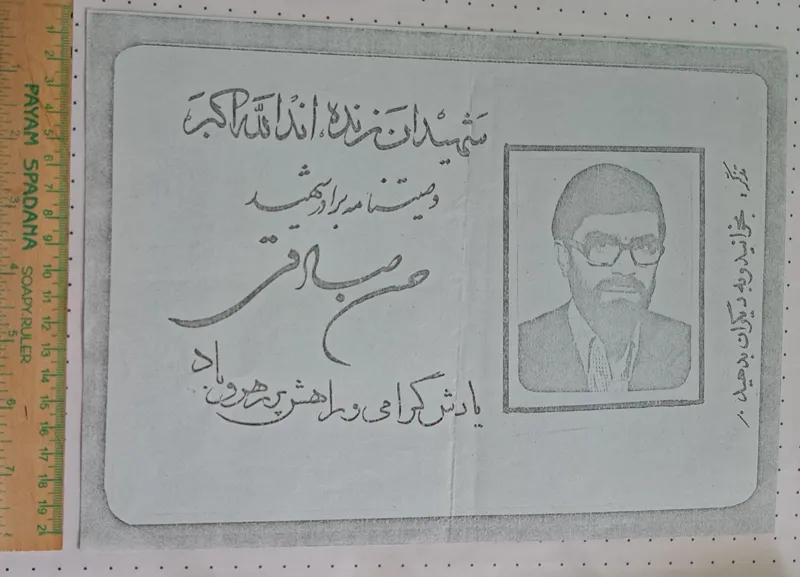 شهیدان زنده‌اند الله اکبر
وصیتنامه برادر شهید
حسن صادقی
یادش گرامی و راهش پر رهرو باد
تذکر: بخوانید و به دیگران بدهید.
PAYAM SPADANA SOAPY.RULER
1 2 3 4 5 6 7 8 9 10 11 12 13 14 15 16 17 18 19 2
1 2 3 4 5 6 7